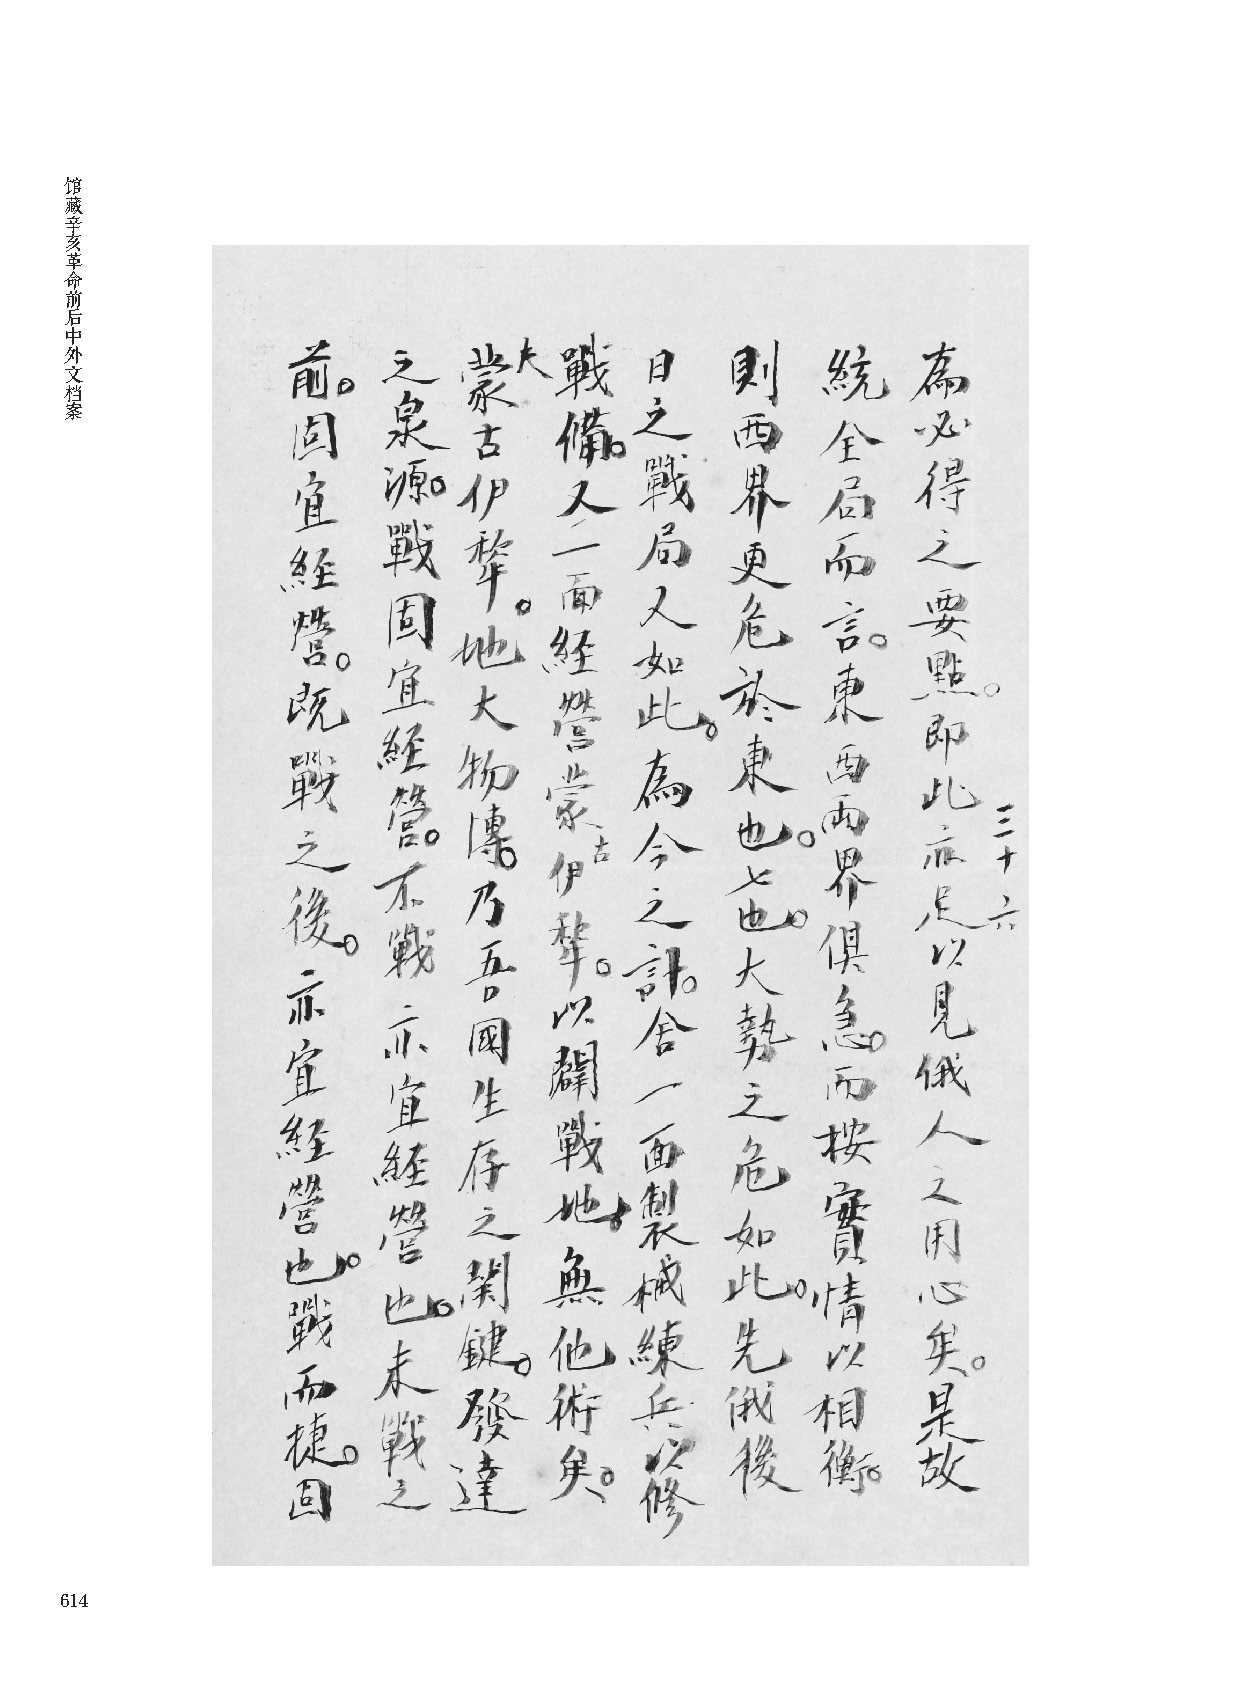 馆藏辛亥革命前后中外文档案
三十六
為必得之要點。即此亦足以見俄人之用心矣。是故
統全局而言。東西兩界俱急。而按實情以相衡。
則西界更危於東也。也。大勢之危如此。先俄後
日之戰局又如此。為今之計。舍一面製械練兵以修
戰備。又一面經營蒙古伊犂。以闢戰地。無他術矣。
夫蒙古伊犂。地大物博。乃吾國生存之関鍵。發達
之泉源。戰固宜經營。不戰亦宜經營也。未戰之
前。固宜經營。既戰之後。亦宜經營也。戰而捷。固
614